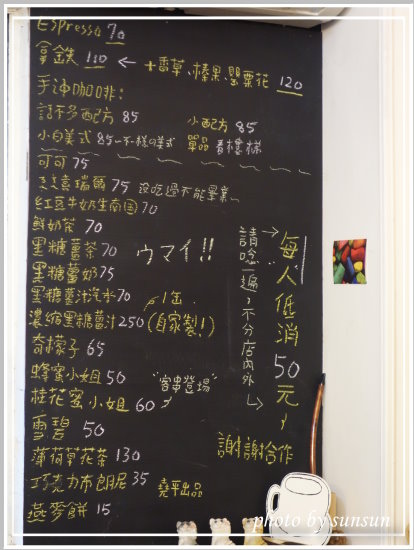 Espresso 70
拿鐵 110 ← +香草、榛果、罌粟花 120
手沖咖啡:
話不多配方 85
小配方 85
小白美式 85-不一樣の美式
單品 看樓梯
可可 75
75 沒吃過不能畢業~
紅豆牛奶生南国 70
鮮奶茶 70
黑糖薑茶 70
ウマイ!!
黑糖薑奶 75
黑糖薑汁汽水 70
濃縮黑糖薑汁 250 1缶 (自家製!)
奇檬子 65
蜂蜜小姐 50
"客串登場"
桂花蜜小姐 60
雪碧 50
薄荷草花茶 130
巧克力布朗尼 35
堯平出品
燕麥餅 15
每人低消50元,
請唸一遍,不分店內外
謝謝合作
photo by sunsun